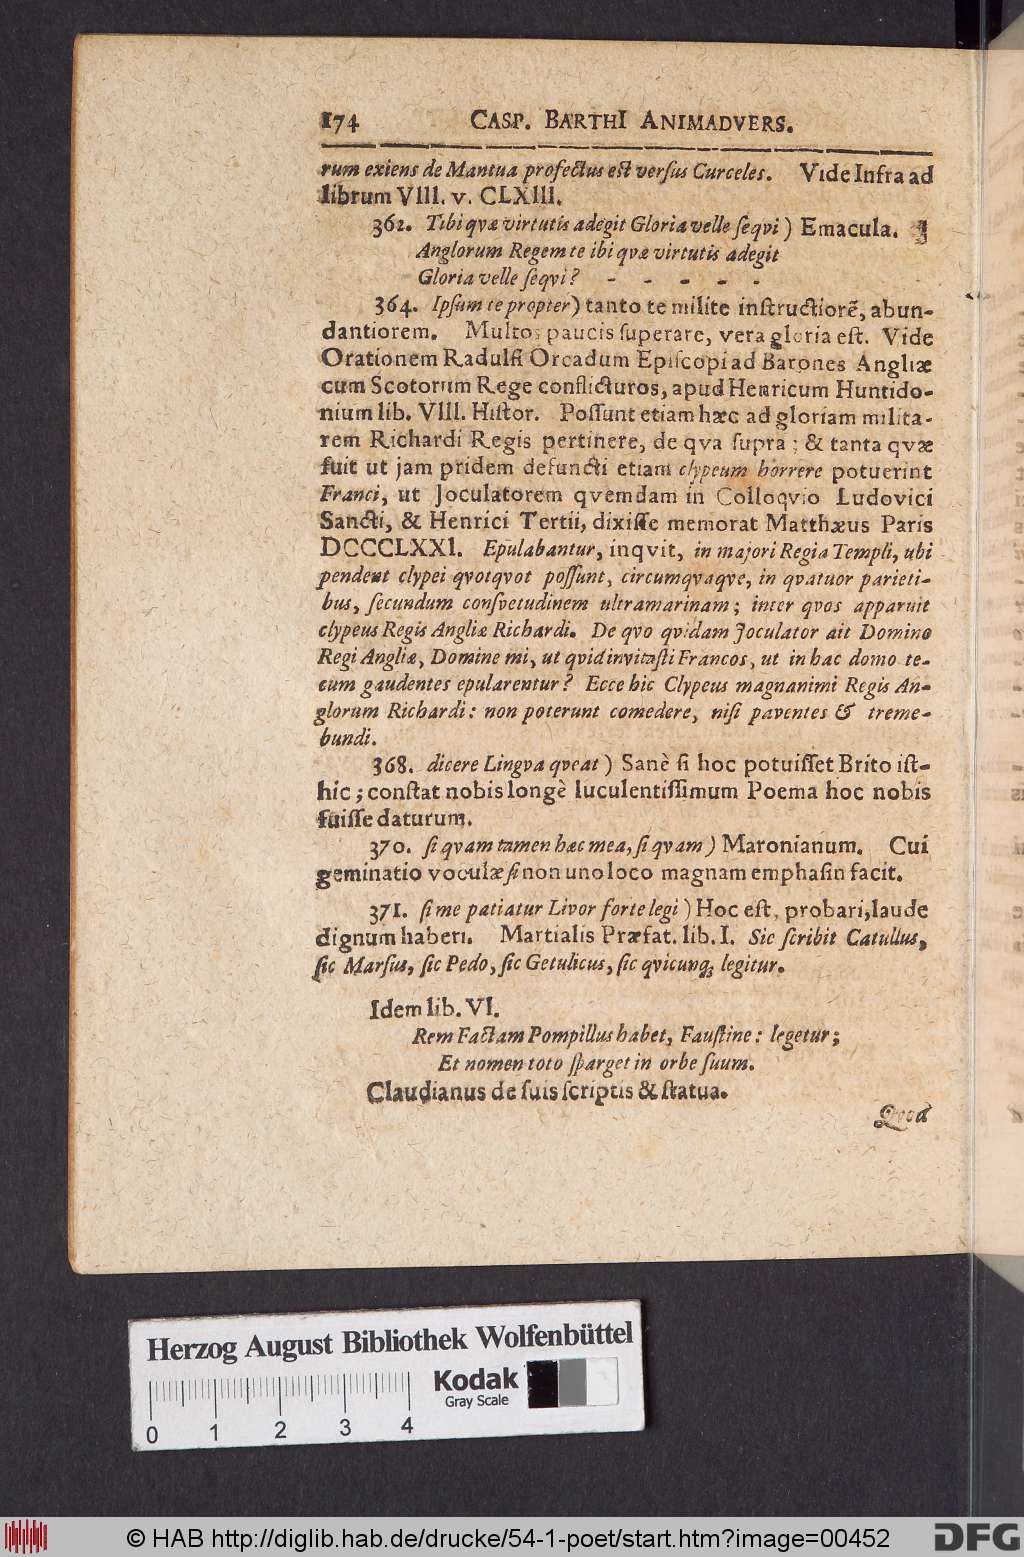 174 CASP. BARTHI ANIMADVERS.
rum exiens de Mantua profectus est versus Curceles. Vide Infra ad
librum VIII. v. CLXIII.
362. Tibi qvæ virtutis adegit Gloria velle seqvi) Emacula.
Anglorum Regem te ibi qvæ virtutis adegit
Gloria velle seqvi? - - - - -
364. Ipsum te propter) tanto te milite instructiorē, abun-
dantiorem. Multos paucis superare, vera gloria est. Vide
Orationem Radulfi Orcadum Episcopi ad Barones Angliæ
cum Scotorum Rege conflicturos, apud Henricum Huntido-
nium lib. VIII. Histor. Possunt etiam hæc ad gloriam milita-
rem Richardi Regis pertinere, de qva supra; & tanta qvæ
fuit ut jam pridem defuncti etiam clypeum horrere potuerint
Franci, ut Joculatorem qvemdam in Colloqvio Ludovici
Sancti, & Henrici Tertii, dixisse memorat Matthæus Paris
DCCCLXXI. Epulabantur, inqvit, in majori Regia Templi, ubi
pendent clypei qvotqvot possunt, circumqvaqve, in qvatuor parieti-
bus, secundum consvetudinem ultramarinam; inter qvos apparuit
clypeus Regis Angliæ Richardi. De qvo qvidam Joculator ait Domino
Regi Angliæ, Domine mi, ut qvid invitasti Francos, ut in hac domo te-
cum gaudentes epularentur? Ecce hic Clypeus magnanimi Regis An-
glorum Richardi: non poterunt comedere, nisi paventes & treme-
bundi.
368. dicere Lingva qveat) Sanè si hoc potuisset Brito ist-
hic; constat nobis longè luculentissimum Poema hoc nobis
fuisse daturum.
370. si qvam tamen hæc mea, si qvam) Maronianum. Cui
geminatio voculæ si non uno loco magnam emphasin facit.
371. si me patiatur Livor forte legi) Hoc est, probari, laude
dignum haberi. Martialis Præfat. lib. I. Sic scribit Catullus,
sic Marsus, sic Pedo, sic Getulicus, sic qvicunq; legitur.
Idem lib. VI.
Rem Factam Pompillus habet, Faustine: legetur;
Et nomen toto sparget in orbe suum.
Claudianus de suis scriptis & statua.
Qvod
Herzog August Bibliothek Wolfenbüttel
Kodak
Gray Scale
0 1 2 3 4
© HAB http://diglib.hab.de/drucke/54-1-poet/start.htm?image=00452
DFG